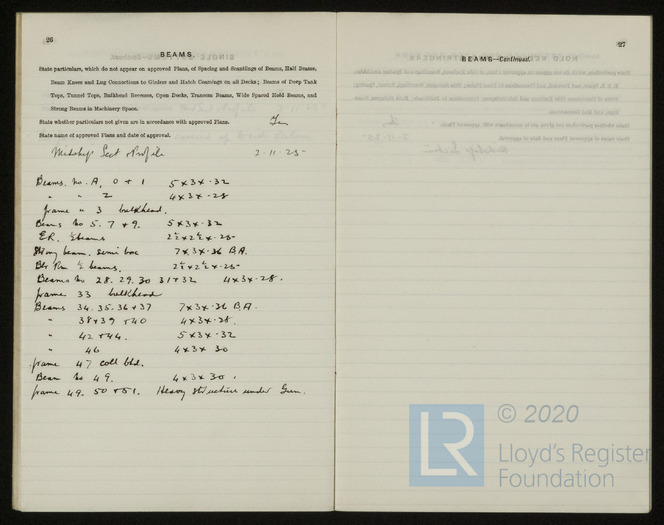 26
BEAMS.
State particulars, which do not appear on approved Plans, of Spacing and Scantlings of Beams, Half Beams,
Beam Knees and Lug Connections to Girders and Hatch Coamings on all Decks; Beams of Deep Tank
Tops, Tunnel Tops, Bulkhead Recesses, Open Decks, Transom Beams, Wide Spaced Hold Beams, and
Strong Beams in Machinery Space.
State whether particulars not given are in accordance with approved Plans.
State name of approved Plans and date of approval.
Midship Sect & Profile 2.11.25
Beams. No. A, 0 + 1 5 x 3 x .32
" " 2 4 x 3 x .28
frame " 3 bulkhead.
Beams No 5. 7 + 9. 5 x 3 x .32
E.R. ½ beams 2½ x 2½ x .25
Strong beam. semi box 7 x 3 x .36 B.A.
Blr Rm ½ beams. 2½ x 2½ x .25
Beams No 28. 29. 30 31 + 32 4 x 3 x .28.
frame 33 bulkhead
Beams 34. 35. 36 + 37 7 x 3 x .36 B.A.
" 38 + 39 + 40 4 x 3 x .28.
" 42 + 44. 5 x 3 x .32
" 46 4 x 3 x 30
frame 47 coll bhd.
Beam No 49. 4 x 3 x 30.
frame 49. 50 + 51. Heavy structure under Gun.
27
BEAMS—Continued.
LR
© 2020
Lloyd's Register
Foundation